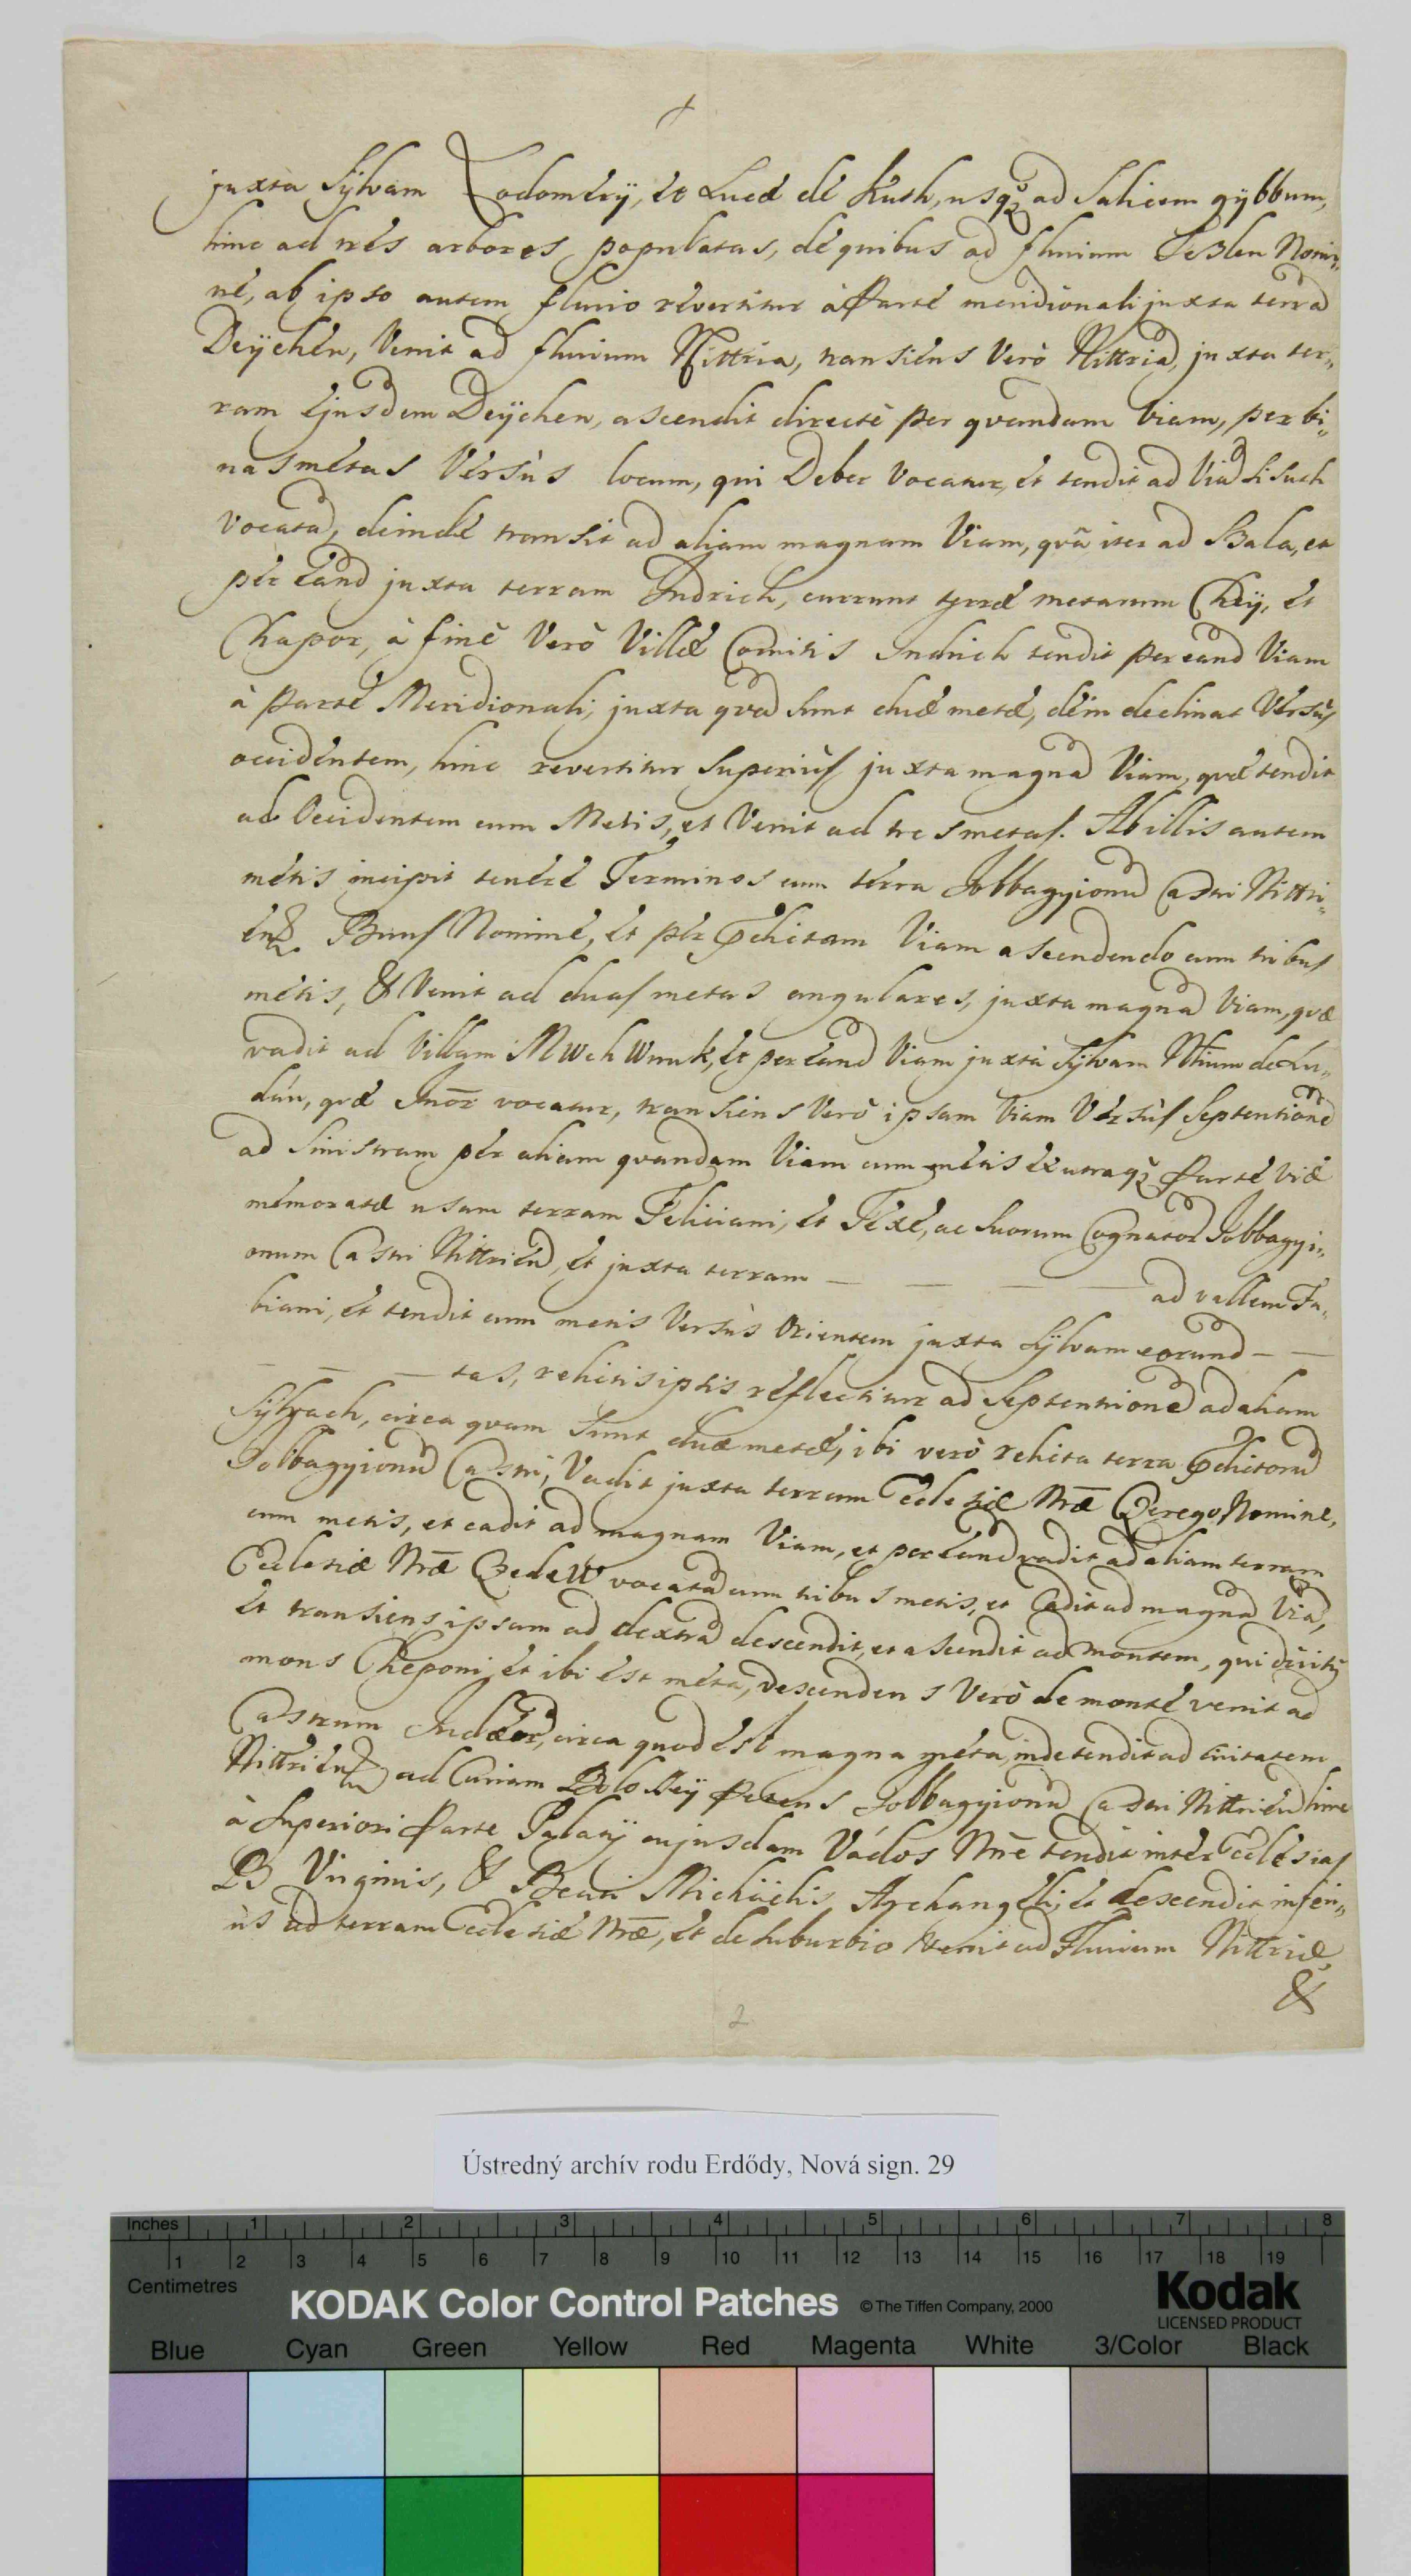 juxta Sylvam Lodomérÿ, et Lucæ dé Kush, usq; ad Salicem gybbum,
hinc ad trés arbores populatas, dé quibus ad fluvium Seslen Nomi„
né, ab ipso autem fluvio révertitur à Parté meridionali juxta terrã
Deÿchén, Venit ad fluvium Nittria, transiéns Verò Nittriã, juxta ter„
ram éjusdem Deÿchen, ascendit directé per qvandam Viam, per bi„
nas métas Vérsùs locum, qui Deber Vocatur, ét tendit ad Viã
Vocatã, deindé transit ad aliam magnam Viam, qvã iter ad Bala, et
pér éand juxta terram Indrich, currunt metarum Chÿ, ét
Chapor, à finé Verò Villæ Comitis Indrich tendit per eand Viam
à Parté Meridionali, juxta qvã sunt duæ metæ, déin declinat Vérsùs
occidéntem, hinc revertitur Superiùs juxta magnã Viam, qvæ tendit
ad Occidentem cum Metis, et Venit ad tres metas. Ab illis autem
métis incipit tenéré Terminos cum térra Jobbagyionũ Castri Nittri„
én Nominé, ét pér Viam ascendendo cum tribus
métis, & Venit ad duas metas angulares, juxta magnã Viam, qvæ
vadit ad Villam MWchWnuk, ét per éand Viam juxta Sylvam de Lu„
dán, qvæ vocatur, transiens Verò ipsam Viam Vérsùs Septentrionẽ
ad Sinistram pér aliam qvandam Viam cum métis éx utraq; Parté Viæ
mémoratæ usam terram Feliciani, ét Téxé, ac Suorum Cognator Jobbagyi„
onum Castri Nittriéñ, ét juxta terram — — — — ad vallem Fa„
biani, ét tendit cum metis Versùs Orientem juxta Sÿlvam eorund — —
— — — tas, relictis iptis réflectitur ad Septentrionẽ ad aliam
circa qvam Sunt duæ metæ, ibi verò relicta terra
Jobbagyionũ Castri, Vadit juxta terram Ecclesiæ Nræ Berego Nominé,
cum metis, et cadit ad magnam Viam, et per éand vadit ad aliam terram
Ecclesiæ Nræ vocatã cum tribus metis, et Cadit ad magnã Viã,
ét transiens ipsam ad dextrã descendit, et ascendit ad Montem, qui dicitr
mons Cheponi, ét ibi ést méta, descendens Verò de monté venit ad
Castrum Judæor, circa quod ést magna méta, inde tendit ad Civitatem
Nittriéñ ad Curiam Jobbagyionũ Castri Nittriéñ hinc
à Superiori Parte Palatÿ cujusdam Vádos Nne tendit intér Ecclésias
B Virginis, & Beati Michäelis Archangéli, ét descendit inferi„
ùs ad terram Ecclesiæ Nræ, ét de Suburbio Venit ad Fluvium Nittriæ,
&
2
Ústredný archív rodu Erdődy, Nová sign. 29
Inches 1 2 3 4 5 6 7 8
1 2 3 4 5 6 7 8 9 10 11 12 13 14 15 16 17 18 19
Centimetres
KODAK Color Control Patches © The Tiffen Company, 2000
Kodak
LICENSED PRODUCT
Blue Cyan Green Yellow Red Magenta White 3/Color Black